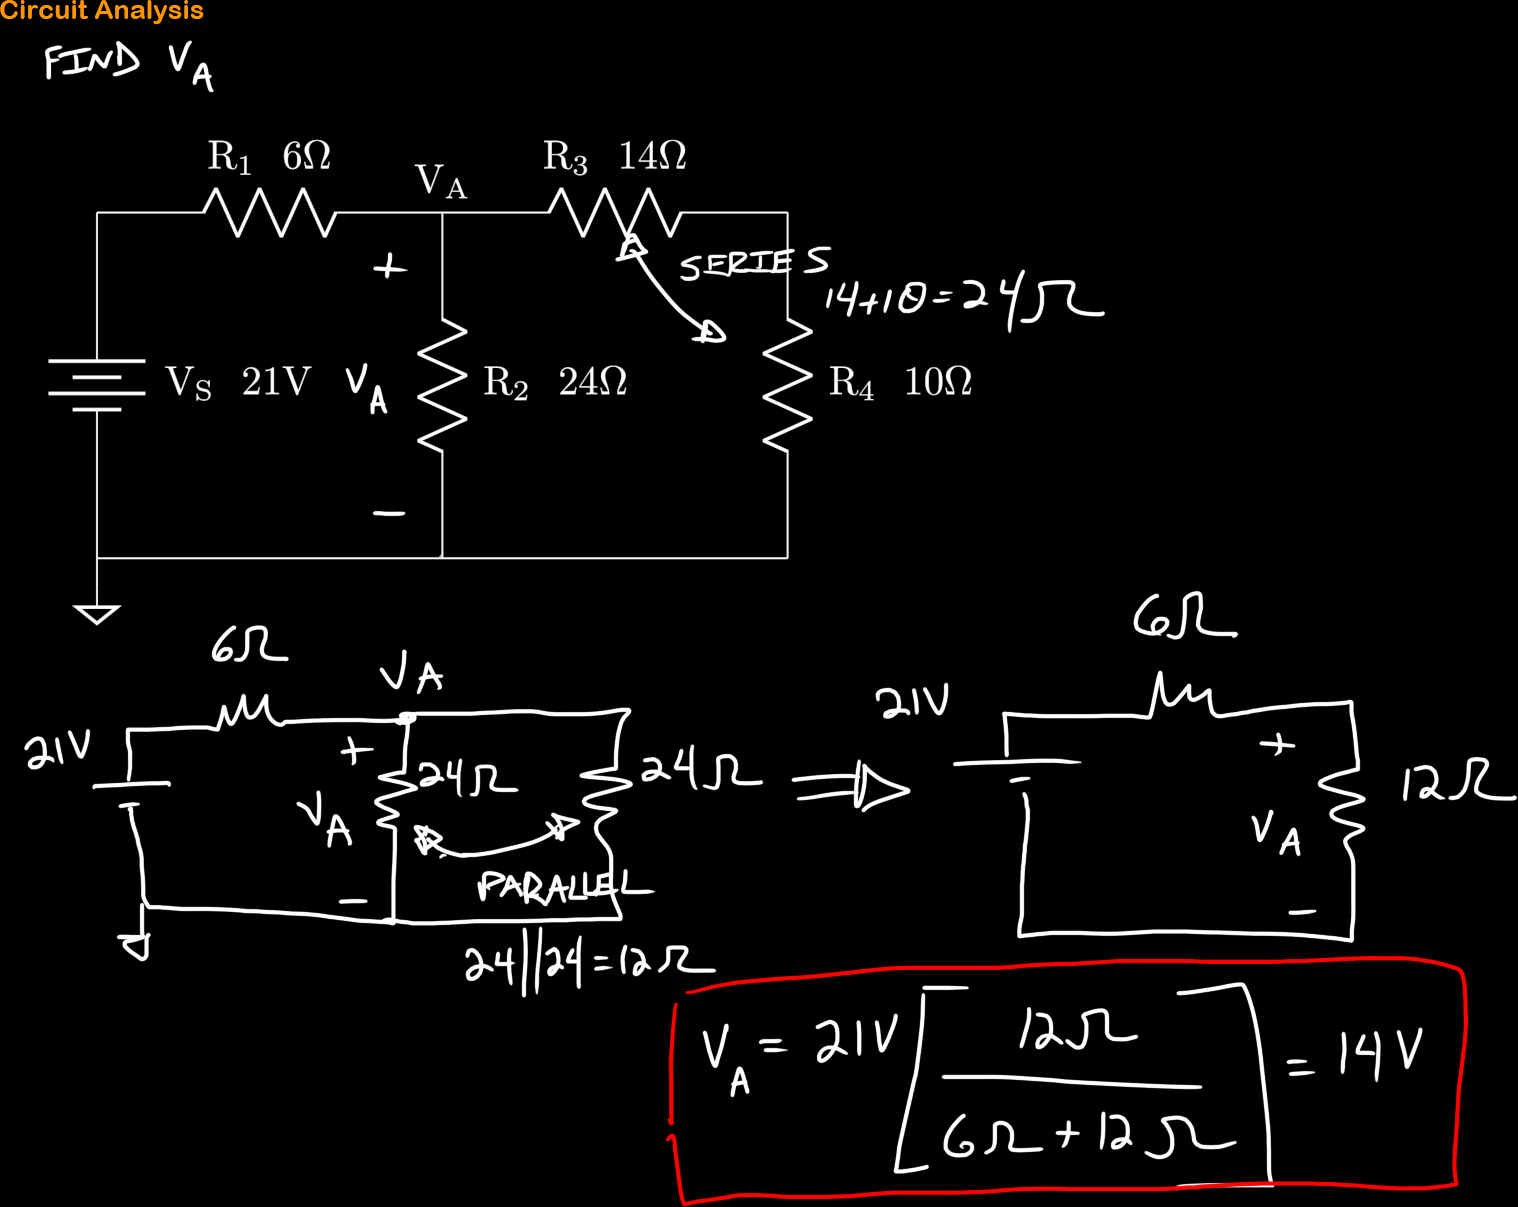 Circuit Analysis
FIND V_A
R₁ 6Ω
V_A
R₃ 14Ω
+
SERIES
14+10=24Ω
V_S 21V
V_A
R₂ 24Ω
R₄ 10Ω
−
6Ω
V_A
21V
+
24Ω
24Ω
V_A
PARALLEL
−
24||24=12Ω
6Ω
21V
+
12Ω
V_A
−
V_A = 21V [12Ω / 6Ω + 12Ω] = 14V